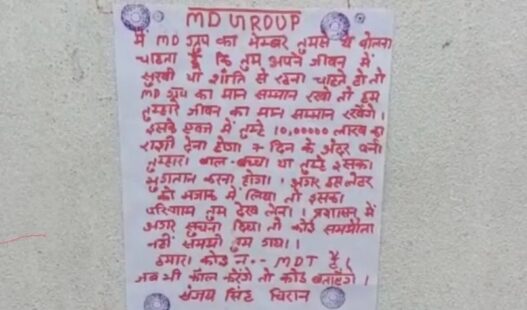 MD GROUP
में MD ग्रुप का मेम्बर तुमसे ये बोलना
चाहता हूँ कि तुम अपने जीवन में
सुखी या शांति से रहना चाहते हो तो
MD ग्रुप का मान सम्मान रखो तो हम
तुम्हारे जीवन का मान सम्मान रखेंगे।
इसके एवज में तुम्हे 10,00000 लाख का
राशी देना होगा 7 दिन के अंदर वर्ना
तुम्हारा बाल-बच्चा या तुम्हे इसका
भुगतान करना होगा। अगर इस लेटर
को मजाक में लिया तो इसका
परिणाम तुम देख लेना। प्रशासन में
अगर सुचना दिया तो कोई समझौता
नहीं समझो तुम गया।
हमारा कोड न.- MDT है।
जब भी कॉल करेंगे तो कोड बताएंगे।
संजय सिंह